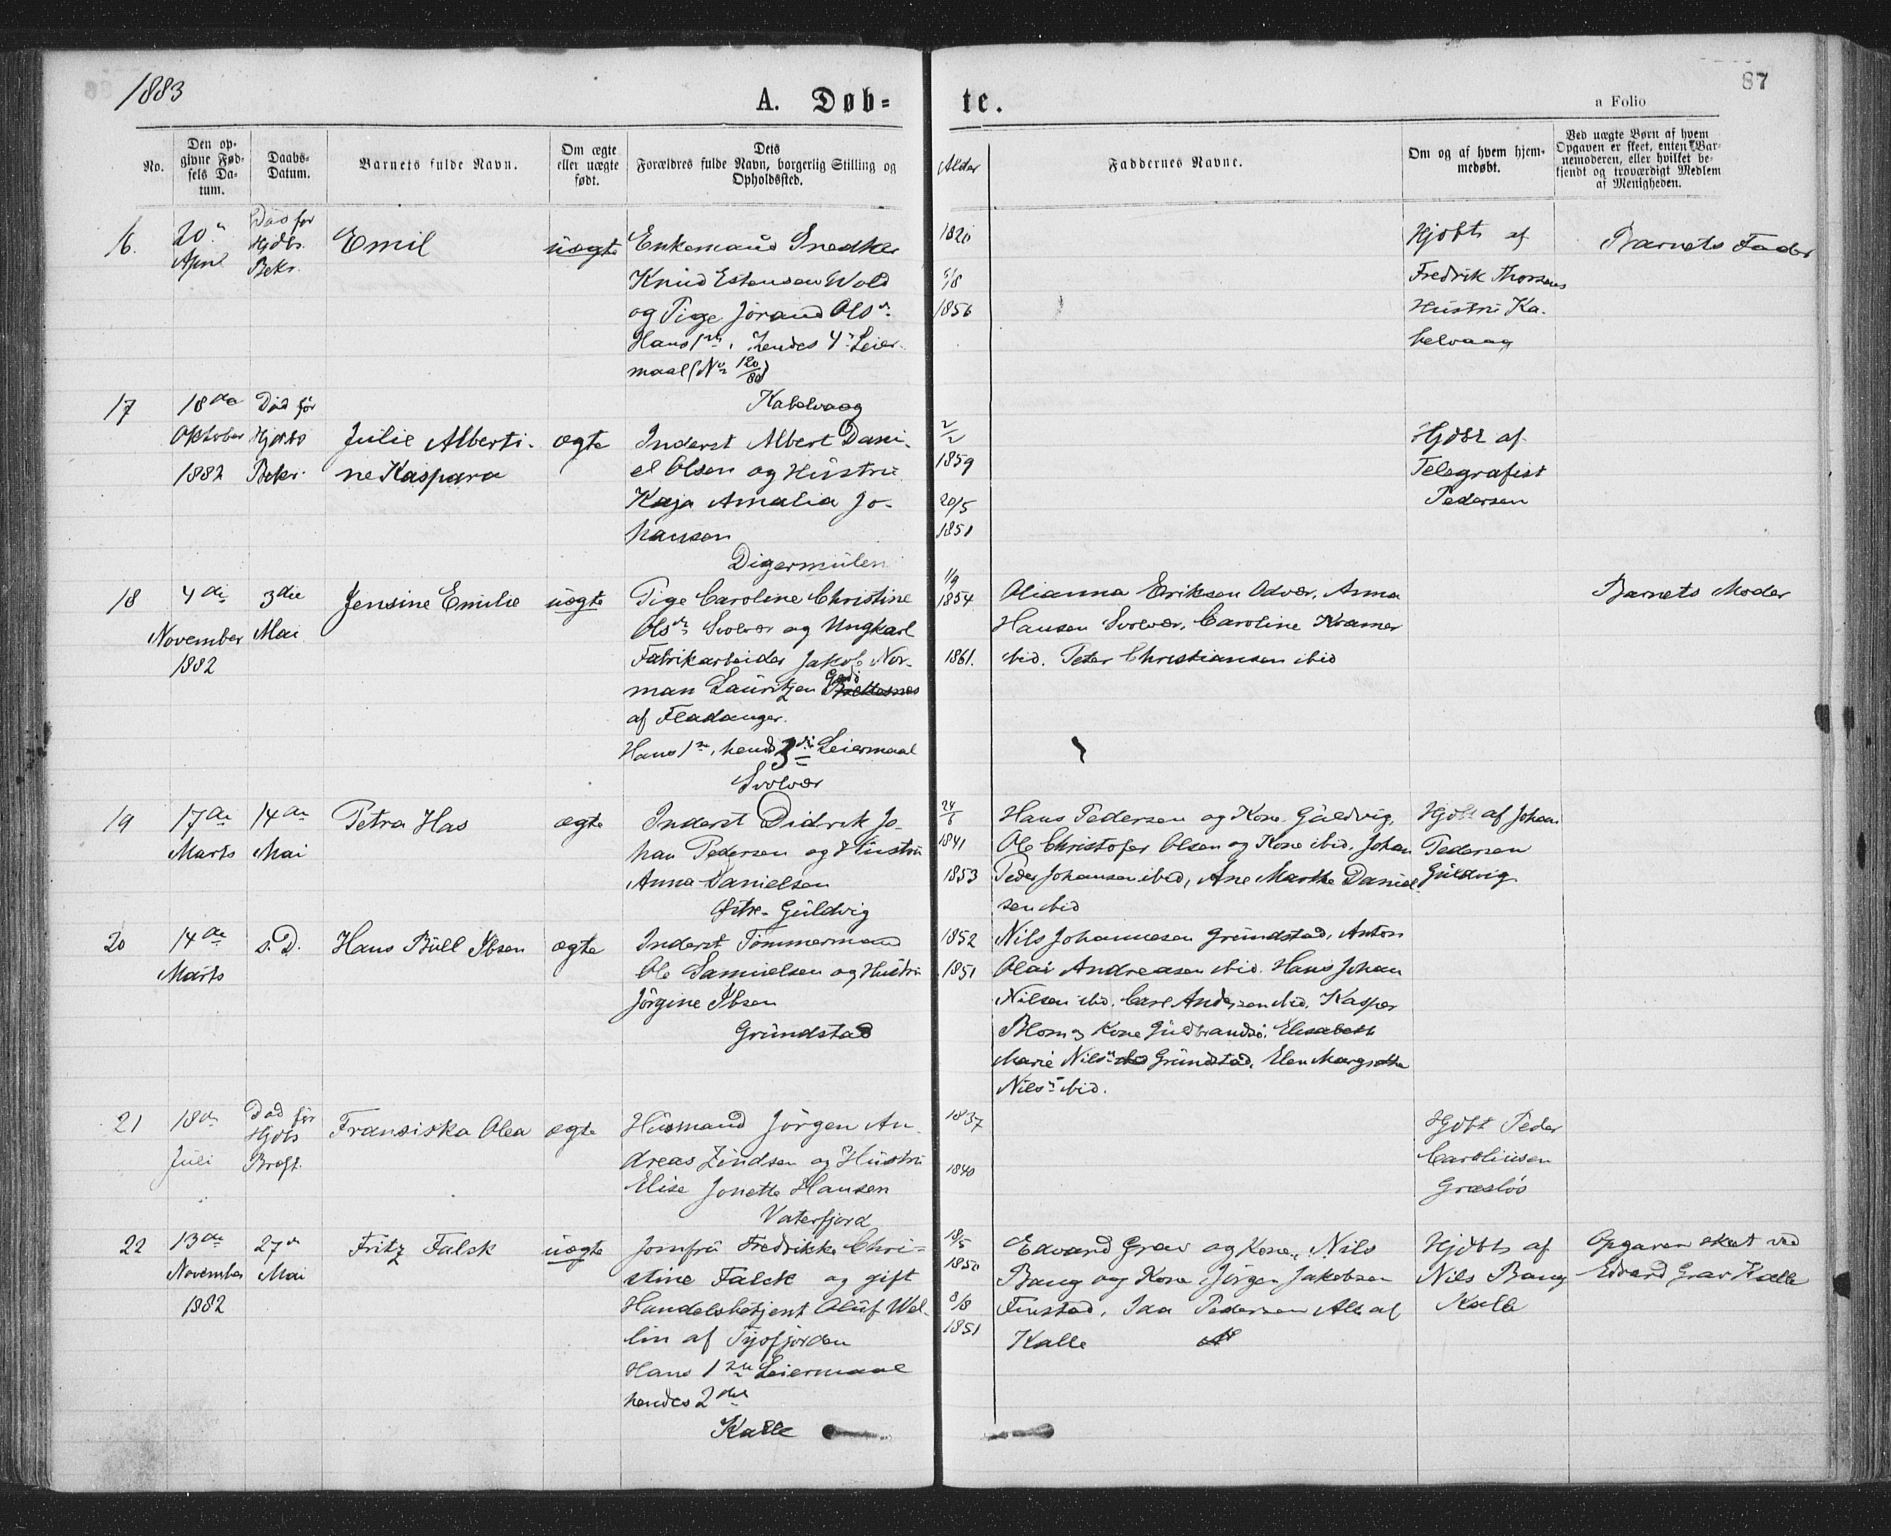 1883
A. Døb-
te.
87
a Folio
No.
Den op-
givne Fød-
sels Da-
tum.
Daabs-
Datum.
Barnets fulde Navn.
Om ægte
eller uægte
født.
Dets
Forældres fulde Navn, borgerlig Stilling og
Opholdssted.
Alder
Faddernes Navne.
Om og af hvem hjem-
medøbt.
Ved uægte Børn af hvem
Opgaven er skeet, enten Bar-
nemoderen, eller hvilket be-
kjendt og troværdigt Medlem
af Menigheden.
16.
20.
April
Død før
Hjdbs.
Bekr.
Emil
uægte
Enkemand Snedker
Knud Estensen Wold
og Pige Jørand Ols
Hans 1ste, hendes 4 Leier-
maal (No 120/80)
Kabelvaag
1820
5/8
1856
Hjdbt af
Fredrik Thorsens
Hustru Ka-
belvaag
Barnets Fader
17
18de
Oktober
1882
Død før
Hjdbs
Bekr.
Julie Alberti-
ne Kaspara
ægte
Inderst Albert Dani-
el Olsen og Hustru
Kaja Amalia Jo-
hansen
Digermulen
2/2
1859
20/5
1851
Hjdbt af
Telegrafist
Pedersen
18
4de
November
1882
3die
Mai
Jensine Emilie
uægte
Pige Caroline Christine
Ols Svolvær og Ungkarl
Fabrikarbeider Jakob Nor-
man Lauritzen Brettesnes
af Fladanger.
Hans 1ste, hend 3die Leiermaal
Svolvær
11/9
1854
1861.
Olianna Eriksen Odvær, Anna
Hansen Svolvær, Caroline Kramer
ibid. Peter Christiansen ibid
Barnets Moder
19
17de
Marts
14de
Mai
Petra Has
ægte
Inderst Didrik Jo-
han Pedersen og Hustru
Anna Danielsen
Østre-Guldvig
24/6
1841
1853
Hans Pedersen og Kone Guldvig,
Ole Christofer Olsen og Kone ibid. Johan
Peder Johansen ibid, Ane Marthe Daniel-
sen ibid
Hjdbt af Johan
Pedersen
Guldvig
20
14de
Marts
s. D.
Hans Bull Ibsen
ægte
Inderst Tømmermand
Ole Samuelsen og Hustru
Jørgine Ibsen
Grundstad
1852
1851
Nils Johannesen Grundstad, Anton
Olai Andreasen ibid. Hans Johan
Nilsen ibid. Carl Andersen ibid. Kasper
Blom og Kone Guldbrandsø. Elisabeth
Marie Nils ibid Grundstad, Elen Margrethe
Nils ibid.
21
18de
Juli
Død før
Hjdbs
Franciska Olea
ægte
Husmand Jørgen An-
dreas Zindsen og Hustru
Elise Jonette Hansen
Vaterfjord
1837
1840
Hjdbt Peder
Carolinsen
Græslø
22
13de
November
1882
27de
Mai
Fritz Falck
uægte
Jomfru Fredrikke Chri-
stine Falck og gift
Handelsbetjent Oluf Wel-
lin af Tysfjorden
Hans 1ste Leiermaal
hendes 2det
Kalle
18/5
1850
8/8
1851
Edvard Grav og Kone, Nils
Bang og Kone, Jørgen Jakobsen
Finstad, Ida Pedersen Alle af
Kalle
Hjdbts af
Nils Bang
Kalle
Opgaven skeet ved
Edvard Grav Kalle